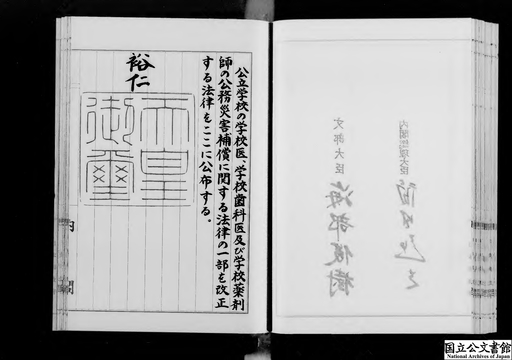 公立学校の学校医、学校歯科医及び学校薬剤
師の公務災害補償に関する法律の一部を改正
する法律をここに公布する。
裕仁
天皇
御璽
内閣
内閣総理大臣
文部大臣
海部俊樹
国立公文書館
National Archives of Japan